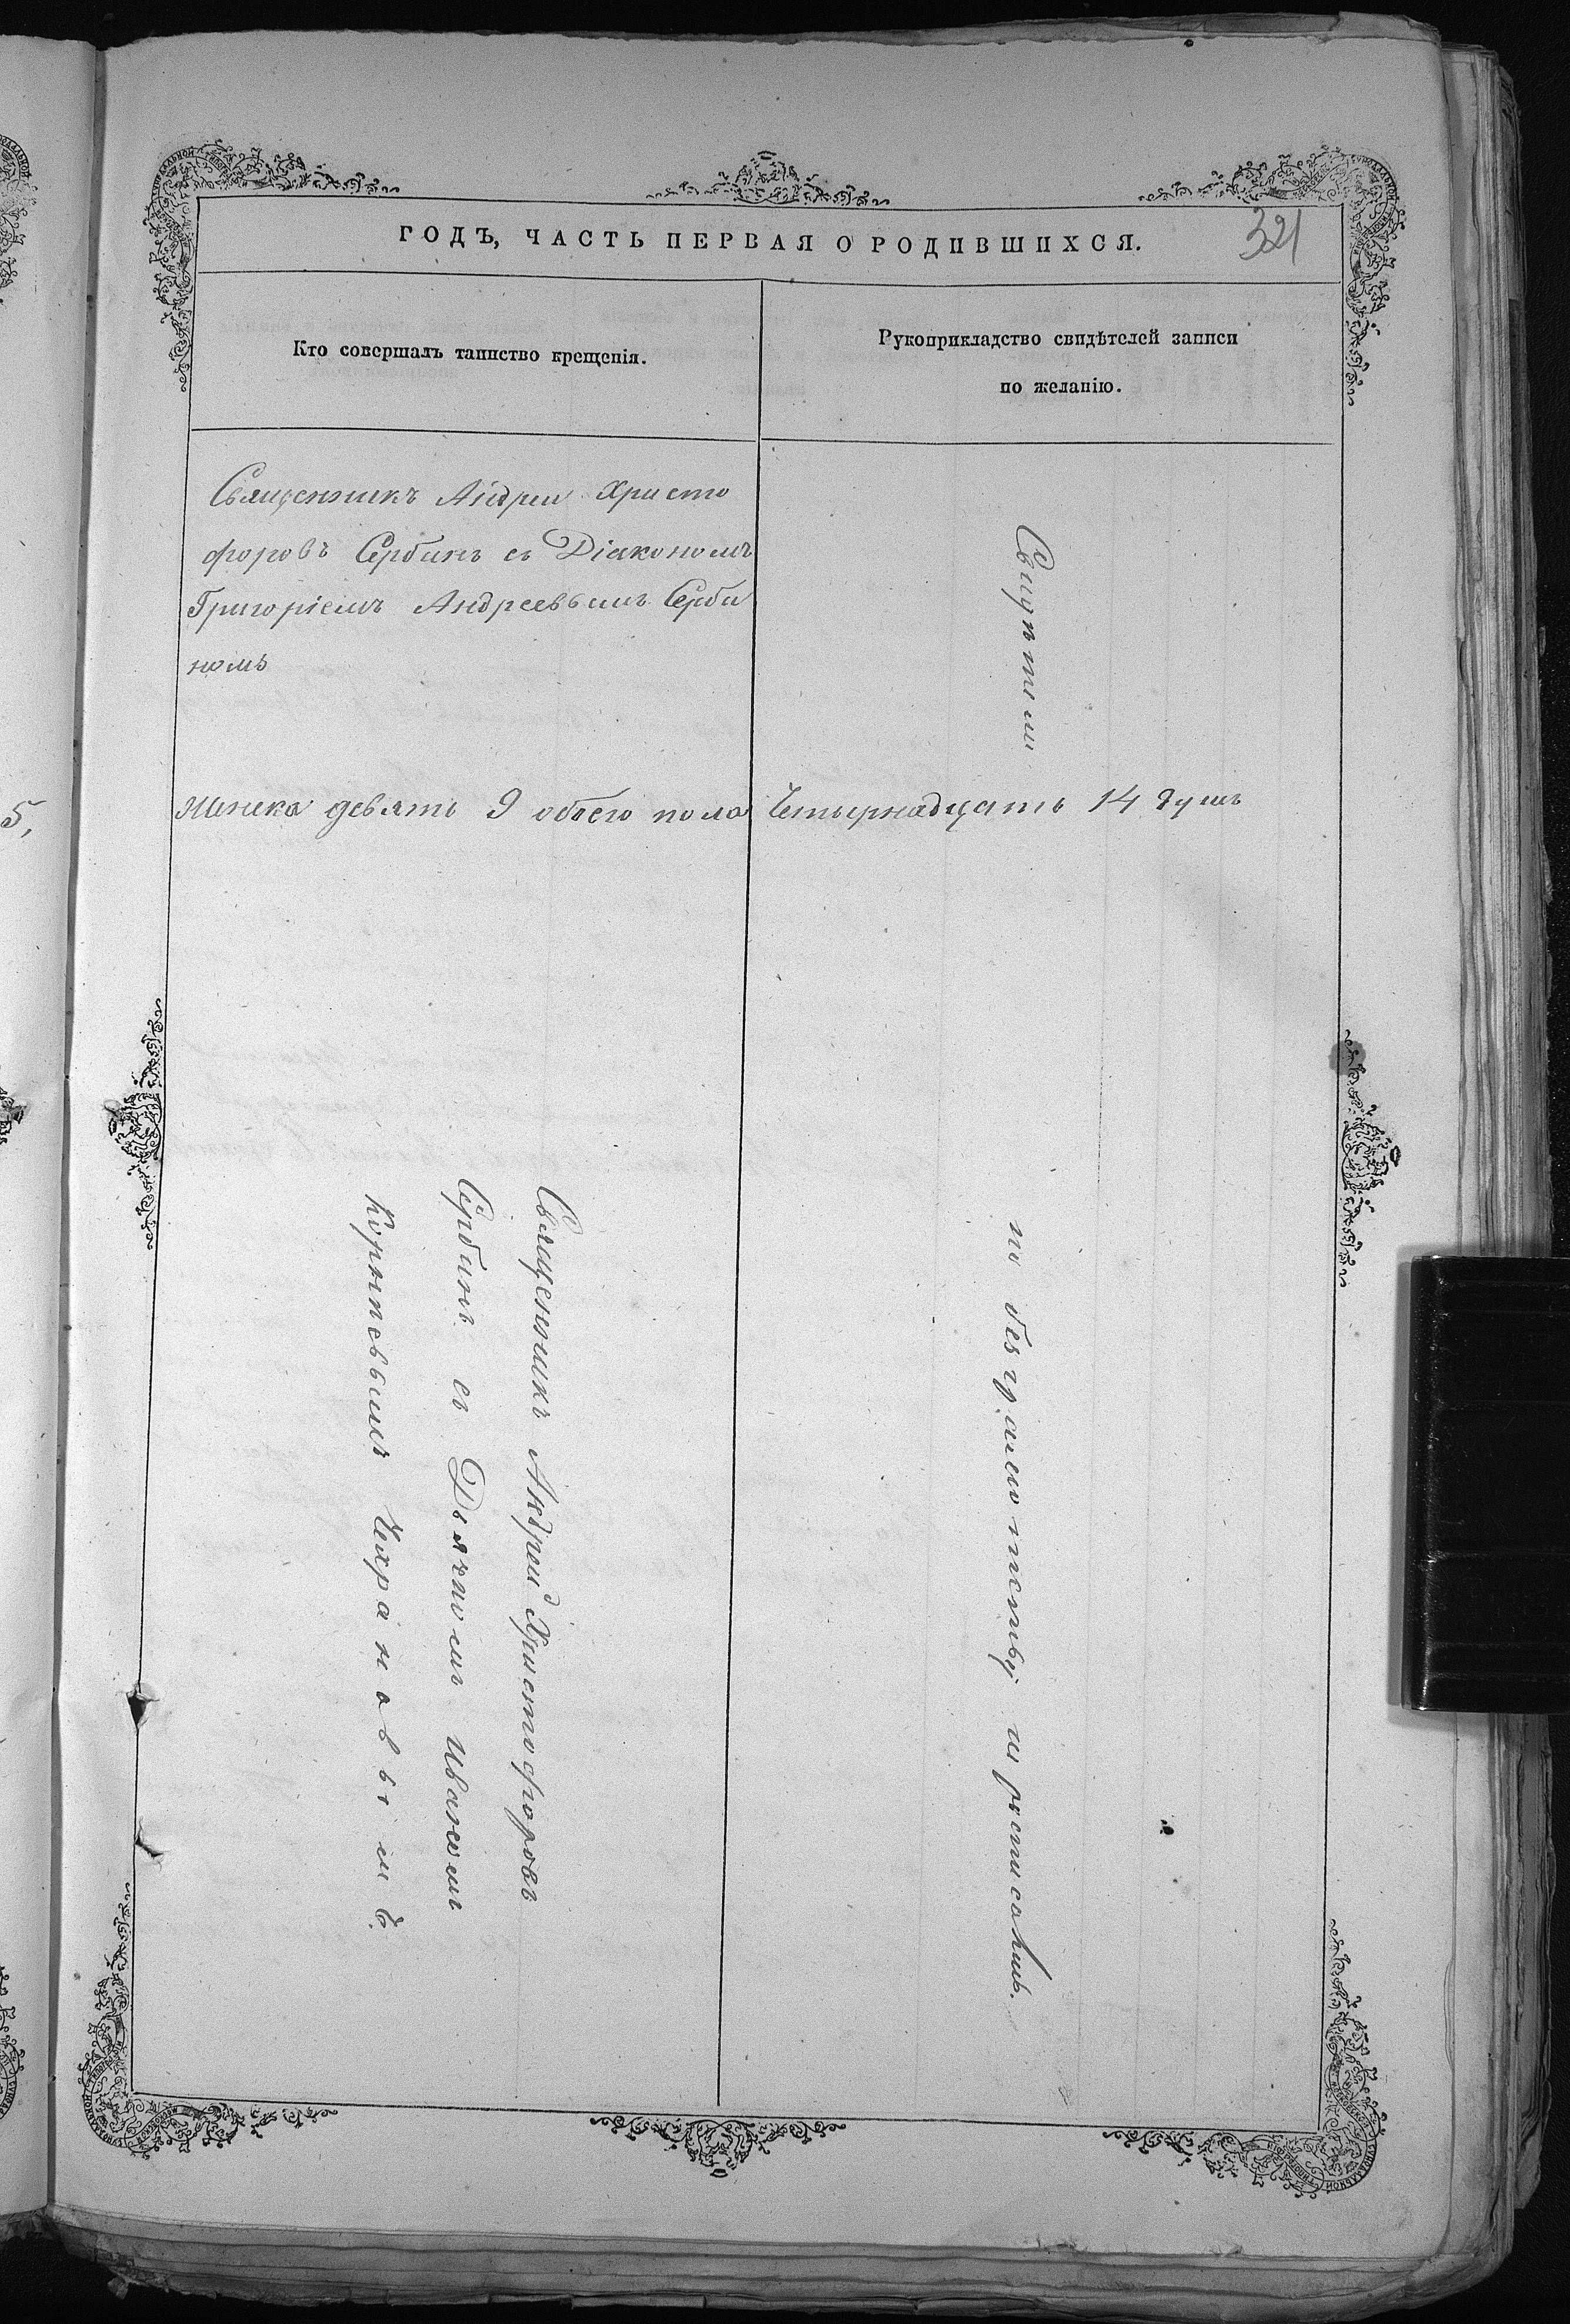 ГОДЪ, ЧАСТЬ ПЕРВАЯ О РОДИВШИХСЯ.
321
Кто совершалъ таинство крещенія.
Рукоприкладство свидѣтелей записи
по желанію.
Священникъ Андреи Христо
форовъ Сербинъ съ Діакономъ
Григоріемъ Андреевымъ Серби
номъ
5,
женска девять 9 обоего пола Четырнадцать 14 душъ
Священникъ Андреи Христофоровъ
Сербинъ съ Дьячкомъ Иваномъ
Корнѣевымъ
по безграмотству не росписались.